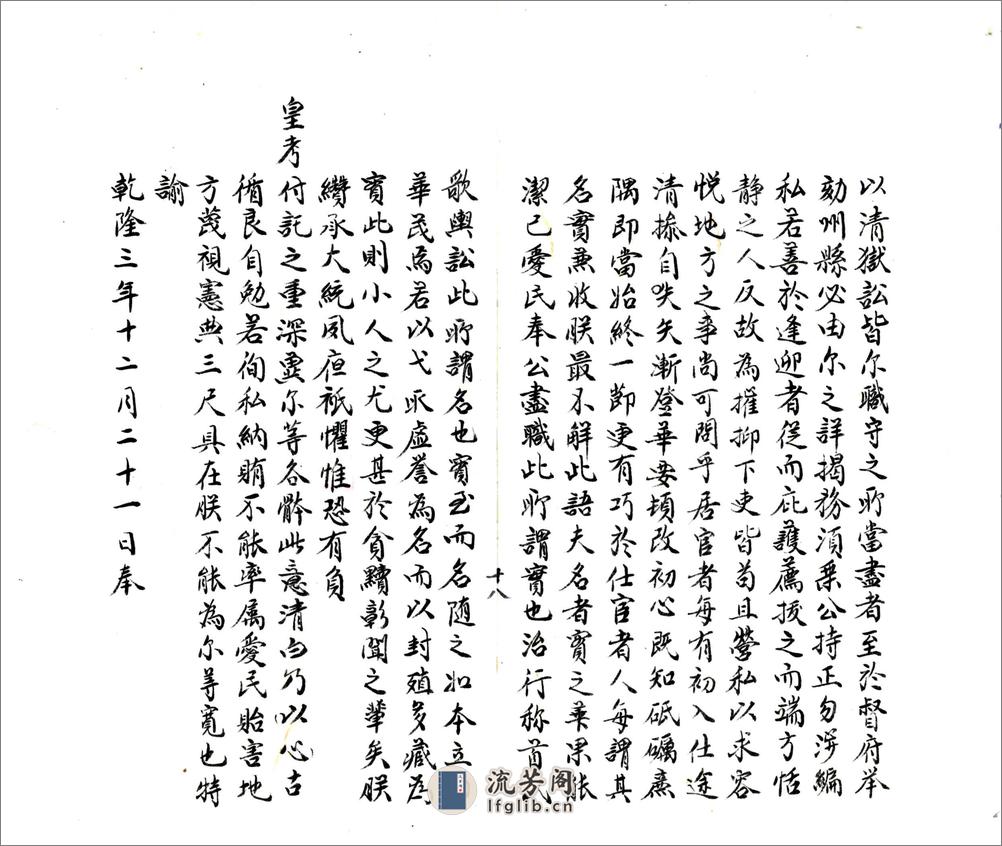 以清獄訟皆尔職守之所當盡者至於督府举
劾州縣必由尔之詳揭務須秉公持正勿涉編
私若善於逢迎者從而庇護薦拔之而端方恬
静之人反故為摧抑下吏皆苟且營私以求容
悦地方之事尚可問乎居官者每有初入仕途
清操自矢矢漸登華要頓改初心既知砥礪廉
隅即當始終一節更有巧於仕宦者人每謂其
名實兼收朕最不解此語夫名者實之華果能
潔己愛民奉公盡職此所謂實也治行称首
十八
歌輿訟此所謂名也實至而名随之如本立
華茂焉若以弋取虛譽為名而以封殖多藏為
實此則小人之尤更甚於貪黷彰聞之輩矣朕
纘承大統夙夜祗懼惟恐有負
皇考付託之重深冀尔等各體此意清白乃以心古
循良自勉若徇私納賄不能率属愛民貽害地
方蔑視憲典三尺具在朕不能為尔等寬也特
諭
乾隆三年十二月二十一日奉
流芳阁
lfglib.cn